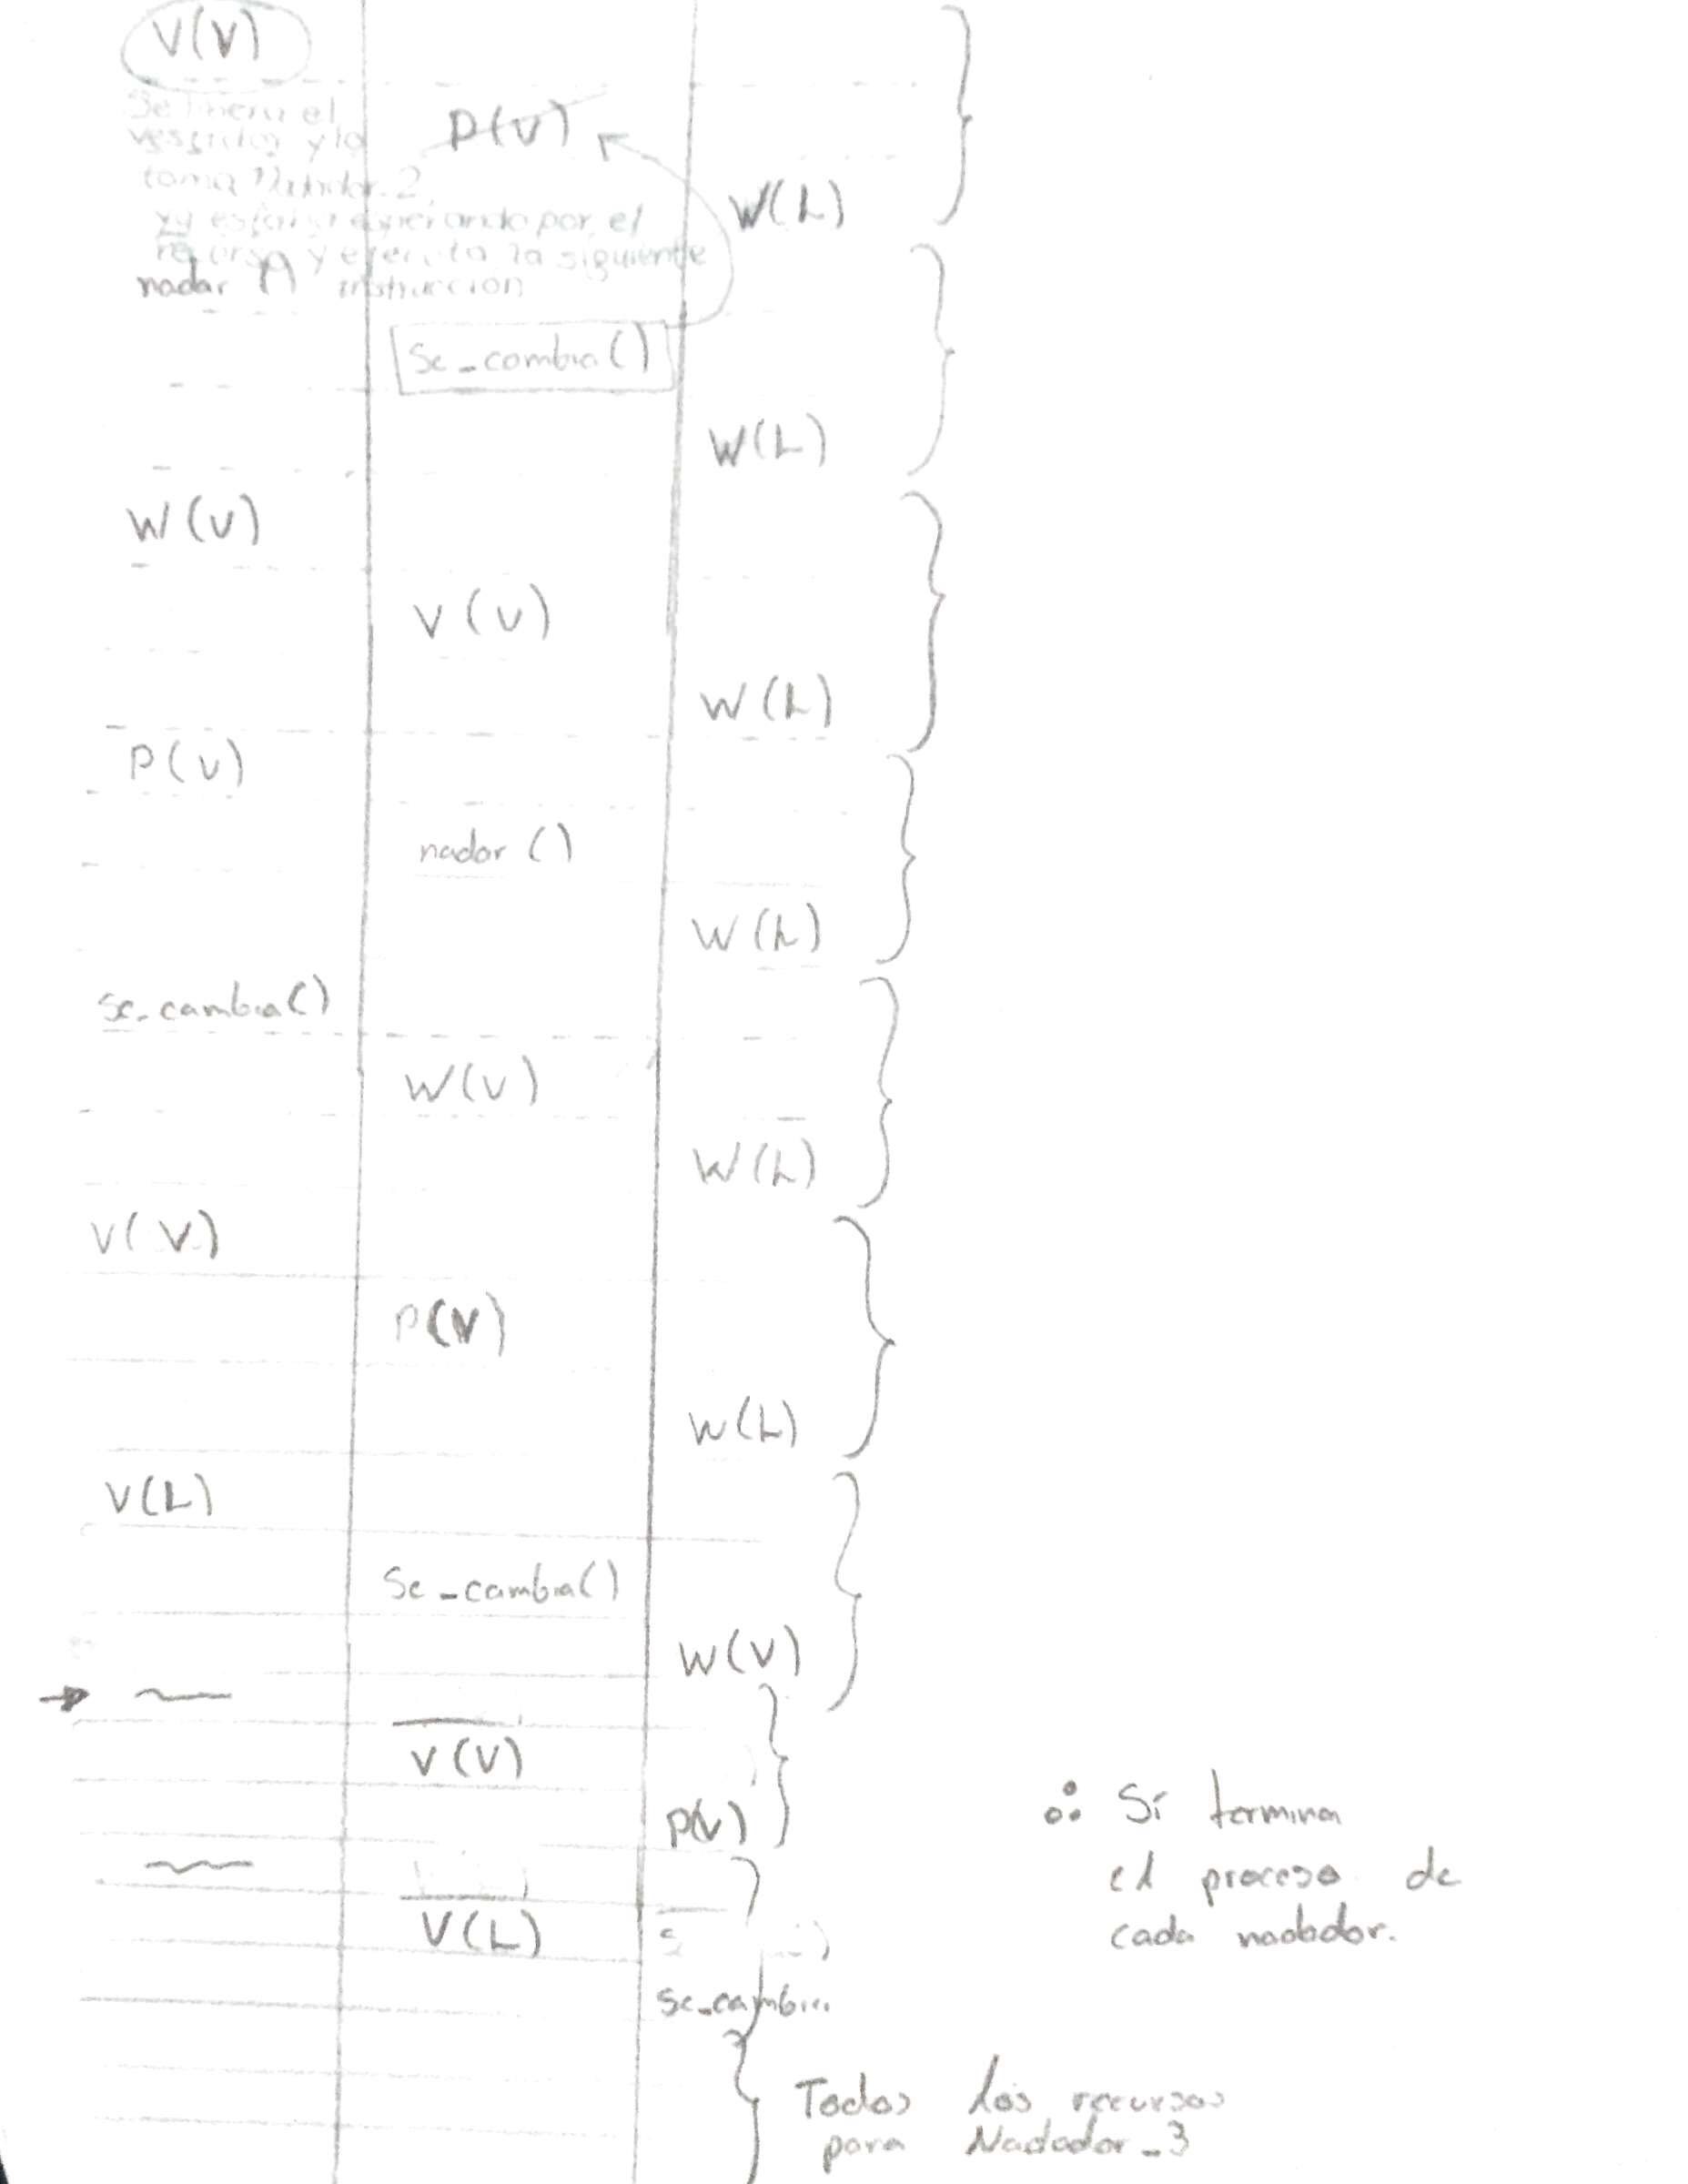 V(V)
Se libera el
vestidor y lo
P(V)
toma Nadador 2,
W(L)
ya estaba esperando por el
recurso y ejecuta la siguiente
nadar () instrucción
Se_cambia()
W(L)
W(V)
V(V)
W(L)
P(V)
nadar ()
W(L)
Se_cambia()
W(V)
W(L)
V(V)
P(V)
W(L)
V(L)
Se_cambia()
W(V)
V(V)
P(V)
∴ Sí termina
el proceso de
V(L)
cada nadador.
Se_cambia
Todos los recursos
para Nadador_3